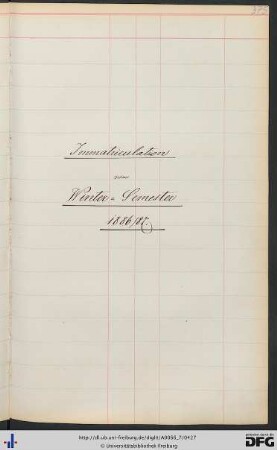 Immatriculation
vom
Winter-Semester
1886/87.
http://dl.ub.uni-freiburg.de/diglit/A0066_7/0427
© Universitätsbibliothek Freiburg
DFG